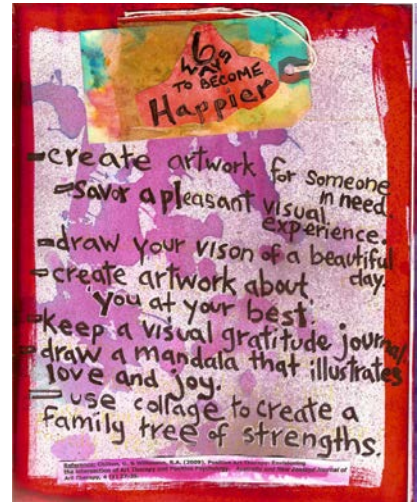 6
ways
TO BECOME
Happier
create artwork for someone
in need.
savor a pleasant visual
experience.
draw your vison of a beautiful
day.
create artwork about
"you at your best."
keep a visual gratitude journal
draw a mandala that illustrates
love and joy.
use collage to create a
family tree of strengths.
Reference: Chilton, G. & Wilkinson, R.A. (2009). Positive Art Therapy: Envisioning
the Intersection of Art Therapy and Positive Psychology. Australia and New Zealand Journal of
Art Therapy, 4 (1) 27-35.